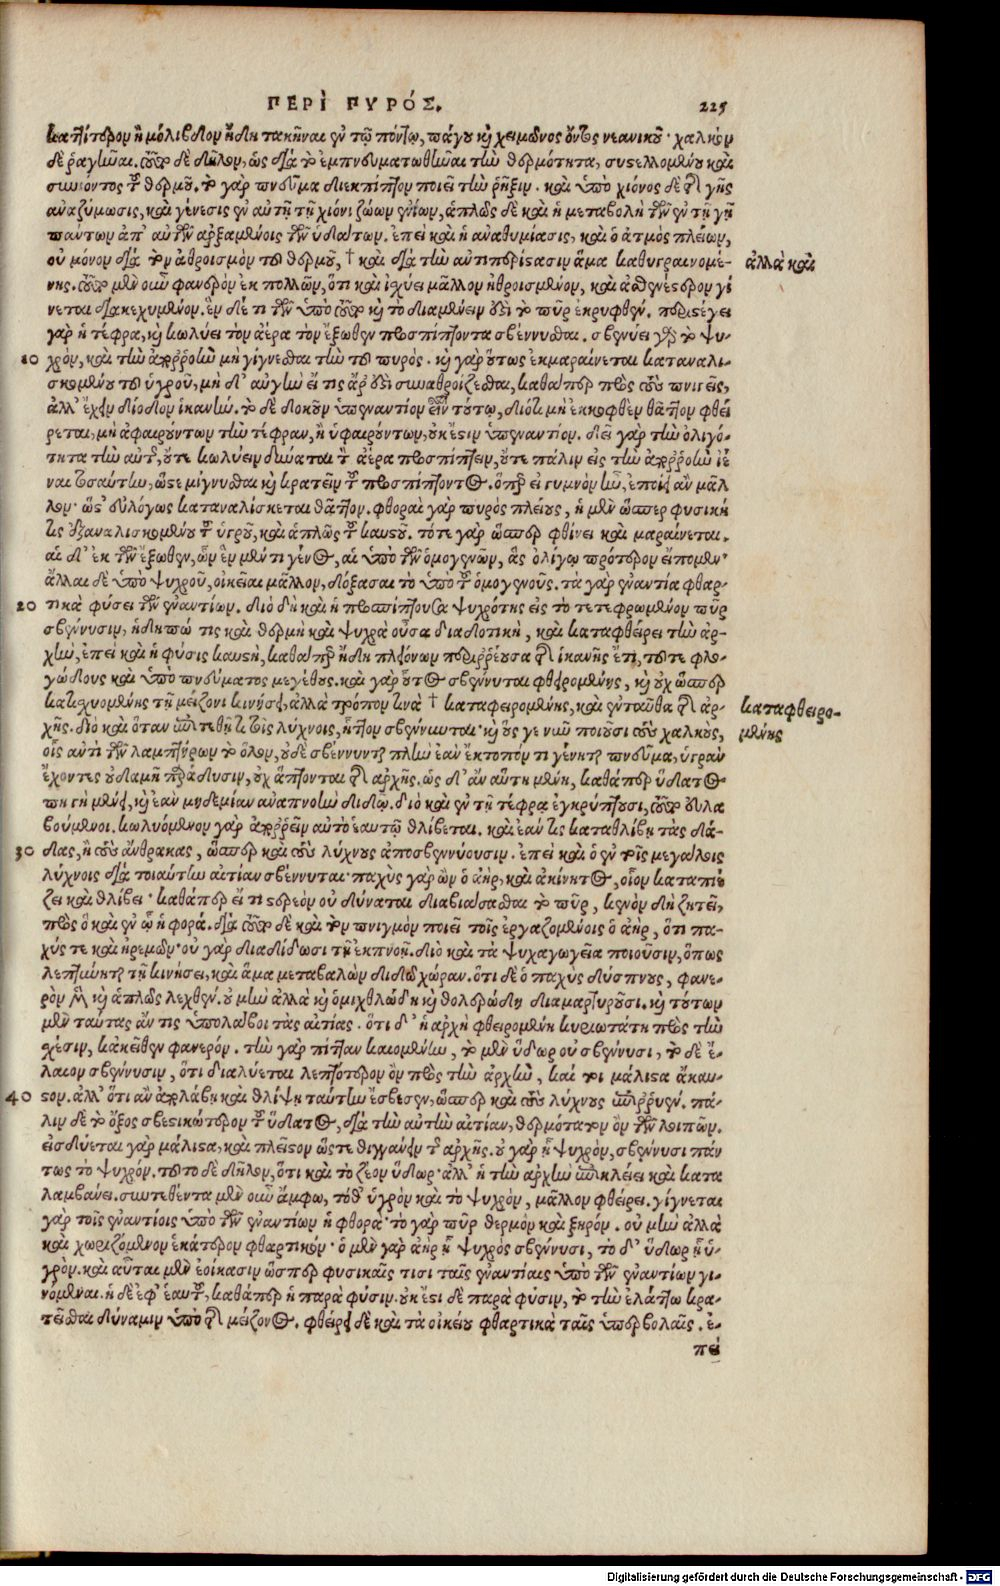 ΠΕΡῚ ΠΥΡΌΣ. 225
κατ[τίτερον ἢ μόλιβδον ἤδη τακῆναι ἐν τῷ πόντῳ, πάγου καὶ χειμῶνος ὄντος νεανικοῦ· χαλκὸν
δὲ ῥαγῆναι. τοῦτο δὲ δῆλον, ὡς διὰ τὸ ἐμπνευματωθῆναι τὴν θερμότητα, συστελλομένου καὶ
συνιόντος τοῦ θερμοῦ. τὸ γὰρ πνεῦμα διεκπίπτον ποιεῖ τὴν ῥῆξιν. καὶ ὑπὸ χιόνος δὲ τῆς γῆς
ἀναζύμωσις, καὶ γένεσις ἐν αὐτῇ τῇ χιόνι ζώων ἐνίων, ἁπλῶς δὲ καὶ ἡ μεταβολὴ τῶν ἐν τῇ γῇ
πάντων ἀπ' αὐτῶν ἀρξαμένοις τῶν ὑδάτων. ἐπεὶ καὶ ἡ ἀναθυμίασις, καὶ ὁ ἀτμὸς πλείων,
οὐ μόνον διὰ τὸν ἀθροισμὸν τοῦ θερμοῦ, † καὶ διὰ τὴν ἀντιπερίστασιν ἅμα καθυγραινομέ-
ἀλλὰ καὶ
νης. τοῦτο μὲν οὖν φανερὸν ἐκ πολλῶν, ὅτι καὶ ἰσχύει μᾶλλον ἠθροισμένον, καὶ ἀσθενέστερον γί
νεται διακεχυμένον. ἓν δέ τι τῶν ὑπὸ τοῦτο καὶ τὸ διαμένειν ἐστὶ τὸ πῦρ ἐκρυφθέν. περιστέγει
γὰρ ἡ τέφρα, καὶ κωλύει τὸν ἀέρα τὸν ἔξωθεν προσπίπτοντα σβέννυσθαι. σβεννύει γὰρ τὸ ψυ-
10 χρὸν, καὶ τὴν ἀπορροὴν μὴ γίγνεσθαι τὴν τοῦ πυρός. καὶ γὰρ οὕτως ἐκμαραίνεται καταναλι-
σκομένου τοῦ ὑγροῦ, μὴ δ' αὐγὴν εἴ τις ἄρ' ἐστὶ συναθροίζεσθαι, καθάπερ πρὸς τοὺς πνιγεῖς,
ἀλλ' ἔχειν δίοδον ἱκανήν. τὸ δὲ δοκοῦν ὑπεναντίον εἶναι τούτῳ, διότι μὴ ἐκκοφθὲν θᾶττον φθεί
ρεται, μὴ ἀφαιρούντων τὴν τέφραν, ἢ ὑφαιρούντων, οὐκ ἔστιν ὑπεναντίον. δεῖ γὰρ τὴν ὀλιγό-
τητα τὴν αὐτοῦ, οὔτε κωλύειν δύναται τὸν ἀέρα προσπίπτειν, οὔτε πάλιν εἰς τὴν ἀπορροὴν ἰέ
ναι τοσαύτην, ὥστε μίγνυσθαι καὶ κρατεῖν τοῦ προσπίπτοντος. ὅπερ εἰ γυμνὸν ἦν, ἐποίει ἂν μᾶλ
λον· ὥστ' εὐλόγως καταναλίσκεται θᾶττον. φθοραὶ γὰρ πυρὸς πλείους, ἡ μὲν ὥσπερ φυσική
τις ἐξαναλισκομένου τοῦ ὑγροῦ, καὶ ἁπλῶς τοῦ καυστοῦ. τότε γὰρ ὥσπερ φθίνει καὶ μαραίνεται.
αἱ δ' ἐκ τῶν ἔξωθεν, ὧν ἓν μέν τι γένος, αἱ ὑπὸ τῶν ὁμογενῶν, ἃς ὀλίγῳ πρότερον εἴπομεν·
ἄλλαι δὲ ὑπὸ ψυχροῦ, οἰκεῖαι μᾶλλον, δόξασαι τὸ ὑπὸ τοῦ ὁμογενοῦς. τὰ γὰρ ἐναντία φθαρ-
20 τικὰ φύσει τῶν ἐναντίων. διὸ δὴ καὶ ἡ προσπίπτουσα ψυχρότης εἰς τὸ τετεφρωμένον πῦρ
σβεννύσιν, ἤδη πώ τις καὶ θερμὴ καὶ ψυχρὰ οὖσα διαδοτικὴ, καὶ καταφθείρει τὴν ἀρ-
χὴν, ἐπεὶ καὶ ἡ φύσις καυστὴ, καθάπερ ἤδη πλεόνων περιρρέουσα τῆς ἱκανῆς ἔτι, τοῦτε φλο-
γώδους καὶ ὑπὸ πνεύματος μεγέθους. καὶ γὰρ οὗτος σβέννυται φθειρομένης, καὶ οὐχ ὥσπερ
κατισχυομένης τῇ μείζονι κινήσει, ἀλλὰ τρόπον τινὰ † καταφειρομένης, καὶ ἐνταῦθα τῆς ἀρ-
καταφθειρο-
μένης
χῆς. διὸ καὶ ὅταν ἐπιτεθῇ τι τοῖς λύχνοις, ἧττον σβέννυνται· καὶ οὓς γενῶν ποιοῦσι τοὺς χαλκοῦς,
οἷς ἀντὶ τῶν λαμπτήρων τὸ ὅλον, οὐδὲ σβέννυνται πλὴν ἐὰν ἔκτοπόν τι γένηται πνεῦμα, ὑγρὰν
ἔχοντες οὐδαμῇ παράδυσιν, οὐχ ἅπτονται τῆς ἀρχῆς. ὡς δ' ἂν αὕτη μένῃ, καθάπερ ὕδατος
πηγὴ μένει, καὶ ἐὰν μηδεμίαν ἀναπνοὴν διδῷ. διὸ καὶ ἐν τῇ τέφρᾳ ἐγκρύπτουσι, τοῦτο εὐλα
βούμενοι. κωλυόμενον γὰρ ἀπορρεῖν αὐτὸ ἑαυτῷ θλίβεται. καὶ ἐάν τις καταθλίβῃ τὰς δᾷ-
30 δας, ἢ τοὺς ἄνθρακας, ὥσπερ καὶ τοὺς λύχνους ἀποσβεννύουσιν. ἐπεὶ καὶ ὁ ἐν τοῖς μεγάλοις
λύχνοις διὰ τοιαύτην αἰτίαν σβέννυται· παχὺς γὰρ ὢν ὁ ἀὴρ, καὶ ἀκίνητος, οἷον καταπιέ
ζει καὶ θλίβει· καθάπερ εἴ τι στερεὸν οὐ δύναται διαβιάσασθαι τὸ πῦρ, κενὸν δὴ ζητεῖ,
πρὸς ὃ καὶ ἐν ᾧ ἡ φορά. διὰ τοῦτο δὲ καὶ τὸν πνιγμὸν ποιεῖ τοῖς ἐργαζομένοις ὁ ἀὴρ, ὅτι πα-
χύς τε καὶ ἠρεμῶν· οὐ γὰρ διαδίδωσι τῇ ἐκπνοῇ. διὸ καὶ τὰ ψυχαγωγεῖα ποιοῦσιν, ὅπως
λεπτύνηται τῇ κινήσει, καὶ ἅμα μεταβαλὼν διδῷ χώραν. ὅτι δὲ ὁ παχὺς δύσπνους, φανε-
ρὸν καὶ ἁπλῶς λεχθέν. οὐ μὴν ἀλλὰ καὶ ὁμιχλώδη καὶ θολερώδη διαμαρτυροῦσι. καὶ τούτων
μὲν ταύτας ἄν τις ὑπολάβοι τὰς αἰτίας. ὅτι δ' ἡ ἀρχὴ φθειρομένη κυριωτάτη πρὸς τὴν
σχέσιν, κἀκεῖθεν φανερόν. τὴν γὰρ πίτταν καιομένην, τὸ μὲν ὕδωρ οὐ σβέννυσι, τὸ δὲ ἔ-
λαιον σβέννυσιν, ὅτι διαλύεται λεπτότερον ὂν πρὸς τὴν ἀρχὴν, καί τοι μάλιστα ἄκαυ-
40 στον. ἀλλ' ὅτι ἂν ἀπολάβῃ καὶ θλίψῃ ταύτην ἔσβεσεν, ὥσπερ καὶ τοὺς λύχνους ἐπιρρυέν. πά-
λιν δὲ τὸ ὄξος σβεστικώτερον τοῦ ὕδατος, διὰ τὴν αὐτὴν αἰτίαν, θερμότατον ὂν τῶν λοιπῶν.
εἰσδύεται γὰρ μάλιστα, καὶ πλεῖστον ὥστε θιγγάνειν τῆς ἀρχῆς. οὐ γὰρ ᾗ ψυχρὸν, σβεννύσι πάν
τως τὸ ψυχρόν. τοῦτο δὲ δῆλον, ὅτι καὶ τὸ ζέον ὕδωρ· ἀλλ' ᾗ τὴν ἀρχὴν ἐπικλείει καὶ κατα
λαμβάνει. συντεθέντα μὲν οὖν ἄμφω, τό θ' ὑγρὸν καὶ τὸ ψυχρὸν, μᾶλλον φθείρει. γίγνεται
γὰρ τοῖς ἐναντίοις ὑπὸ τῶν ἐναντίων ἡ φθορά· τὸ γὰρ πῦρ θερμὸν καὶ ξηρόν. οὐ μὴν ἀλλὰ
καὶ χωριζόμενον ἑκάτερον φθαρτικόν· ὁ μὲν γὰρ ἀὴρ ᾗ ψυχρὸς σβέννυσι, τὸ δ' ὕδωρ ᾗ ὑ-
γρόν. καὶ αὗται μὲν ἐοίκασιν ὥσπερ φυσικαῖς τισι ταῖς ἐναντίαις ὑπὸ τῶν ἐναντίων γι-
νόμεναι. ἡ δὲ ἐφ' ἑαυτοῦ, καθάπερ ἢ παρὰ φύσιν. οὐκ ἔστι δὲ παρὰ φύσιν, τὸ τὴν ἐλάττω κρα-
τεῖσθαι δύναμιν ὑπὸ τῆς μείζονος. φθείρει δὲ καὶ τὰ οἰκεῖα φθαρτικὰ ταῖς ὑπερβολαῖς. ἐ-
πεὶ
Digitalisierung gefördert durch die Deutsche Forschungsgemeinschaft - DFG